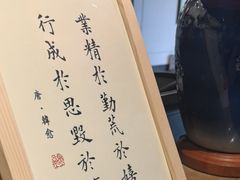 業精於勤荒於嬉
行成於思毀於
唐·韓愈